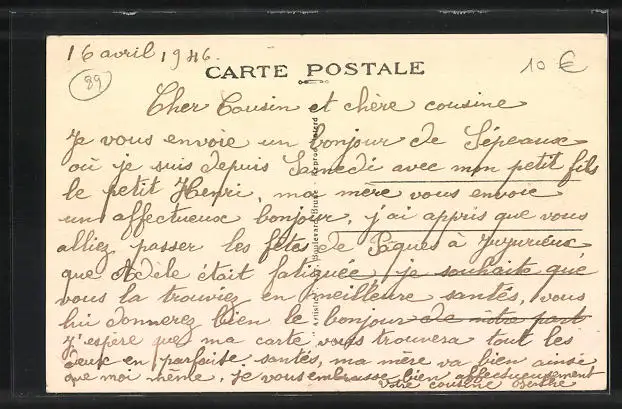 16 avril 1946.
89
10 €
CARTE POSTALE
Cher Cousin et chère cousine
Je vous envoie un bonjour de Sépeaux
où je suis depuis Samedi avec mon petit fils
le petit Henri, ma mère vous envoie
un affectueux bonjour, j'ai appris que vous
alliez passer les fêtes de Pâques à Jujurieux
que Adèle était fatiguée, je souhaite que
vous la trouviez en meilleure santés, vous
lui donnerez bien le bonjour de nôtre part
J'espère que ma carte vous trouvera tout les
deux en parfaite santés, ma mère va bien ainsi
que moi même, je vous embrasse bien affectueusement
votre cousine Berthe
Boulevard Brune